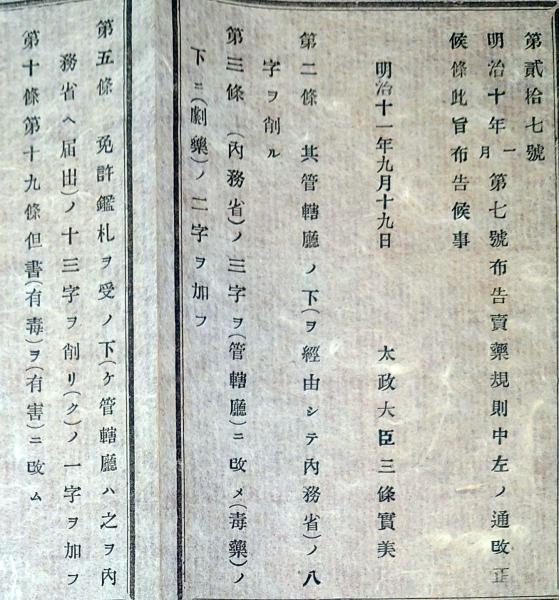 第貳拾七號
明治十年一月第七號布告賣藥規則中左ノ通改正
候條此旨布告候事
明治十一年九月十九日
太政大臣三條實美
第二條 其管轄廳ノ下(ヲ經由シテ內務省)ノ八
字ヲ削ル
第三條 (內務省)ノ三字ヲ(管轄廳)ニ改メ(毒藥)ノ
下ニ(劇藥)ノ二字ヲ加フ
第五條 免許鑑札ヲ受ノ下(ケ管轄廳ハ之ヲ內
務省ヘ届出)ノ十三字ヲ削リ(ク)ノ一字ヲ加フ
第十條第十九條但書(有毒)ヲ(有害)ニ改ム